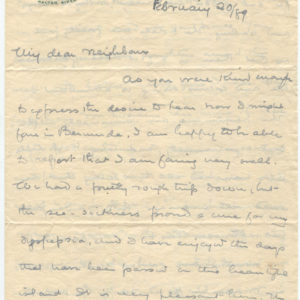 February 20/89
My dear neighbour
As you were kind enough
to express the desire to hear how I might
fare in Bermuda, I am happy to be able
to report that I am faring very well.
We had a pretty rough trip down, but
the sea-sickness proved a cure for my
dyspepsia, and I have enjoyed the days
that have been passed in this beautiful
island. It is very pleasant here. The